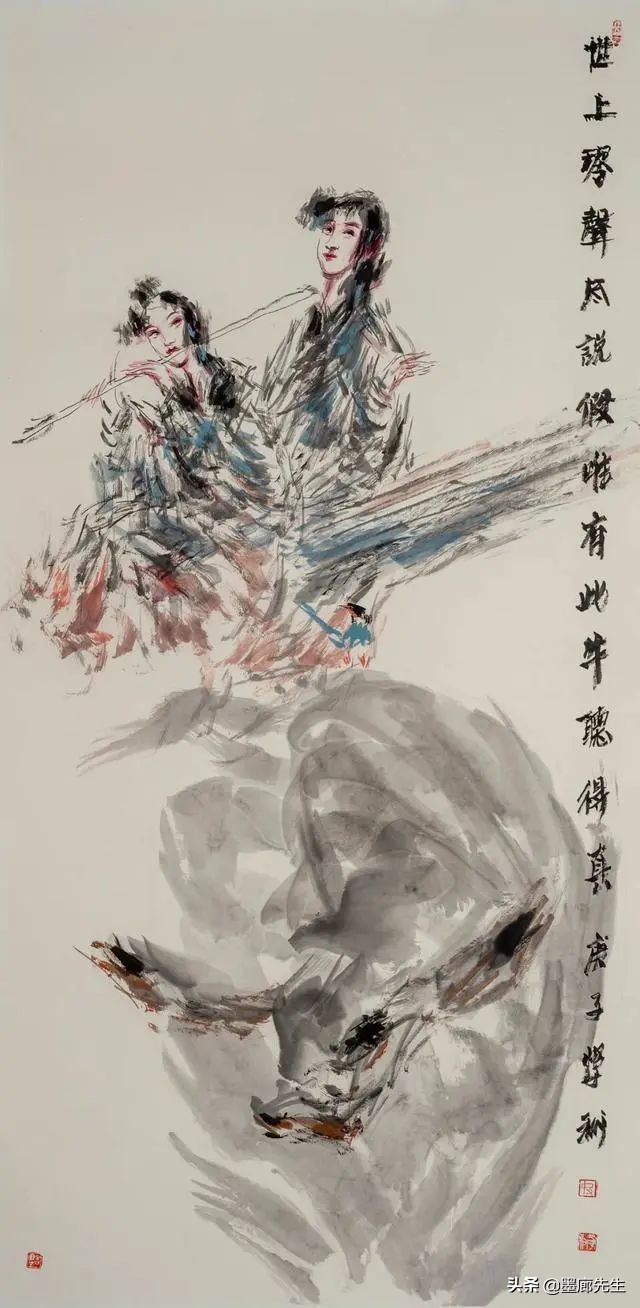 世上琴聲尽說假唯有此牛聽得真庚子
头条 @墨廊先生